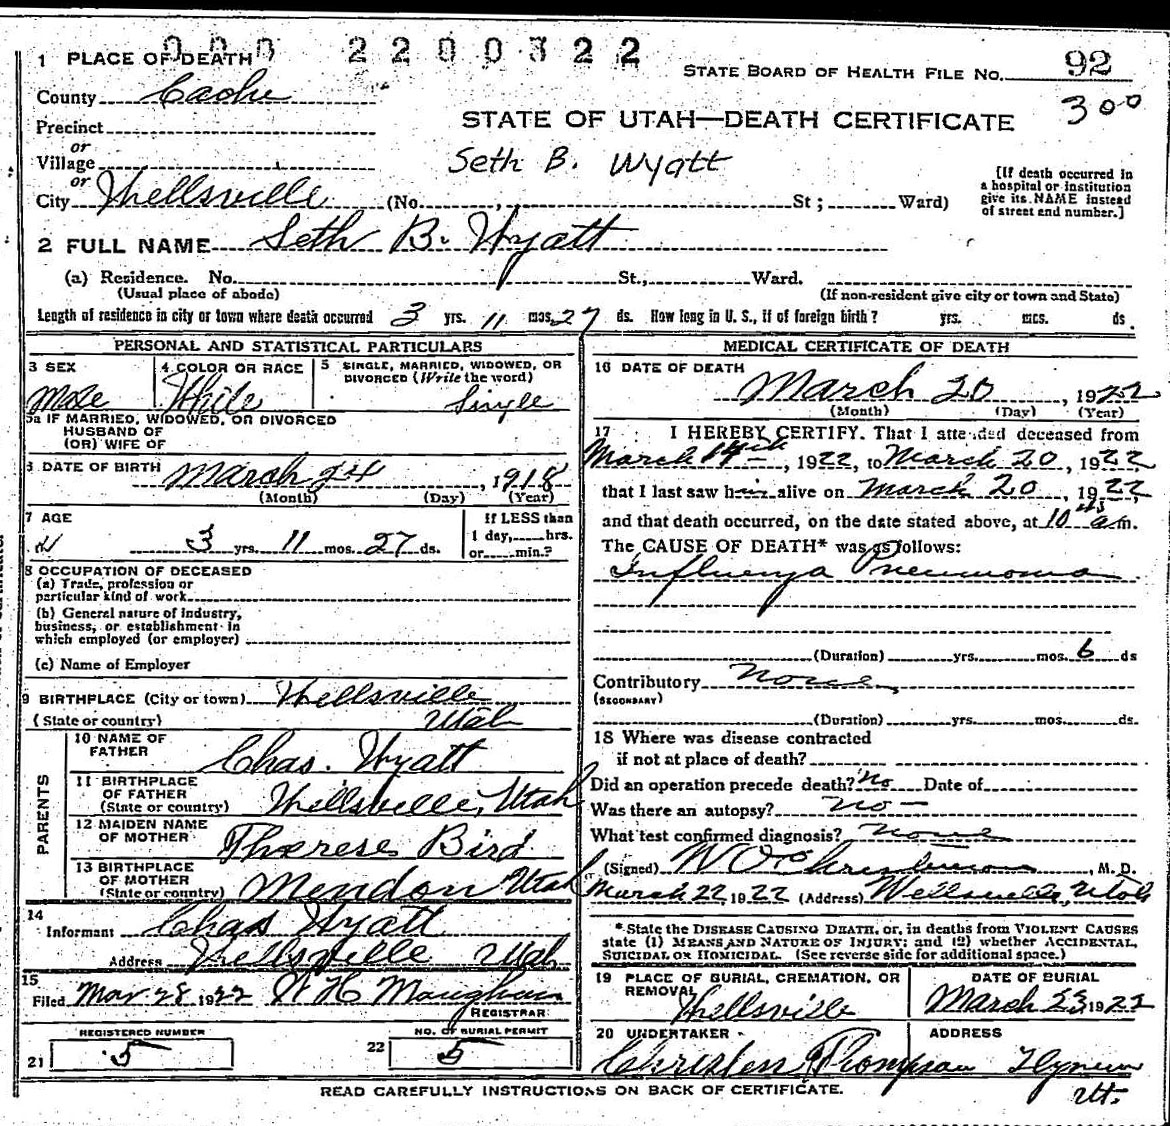 000 2200322
1 PLACE OF DEATH
STATE BOARD OF HEALTH FILE No. 92
County Cache
300
Precinct
STATE OF UTAH—DEATH CERTIFICATE
or
Village
Seth B. Wyatt
or
City Wellsville (No. , St ; Ward)
[If death occurred in
a hospital or institution
give its NAME instead
of street and number.]
2 FULL NAME Seth B. Wyatt
(a) Residence. No. St., Ward.
(Usual place of abode) (If non-resident give city or town and State)
Length of residence in city or town where death occurred 3 yrs. 11 mos. 27 ds. How long in U. S., if of foreign birth? yrs. mos. ds.
PERSONAL AND STATISTICAL PARTICULARS
3 SEX
Male
4 COLOR OR RACE
White
5 SINGLE, MARRIED, WIDOWED, OR
DIVORCED (Write the word)
Single
5a IF MARRIED, WIDOWED, OR DIVORCED
HUSBAND OF
(OR) WIFE OF
6 DATE OF BIRTH March 24, 1918
(Month) (Day) (Year)
7 AGE
3 yrs. 11 mos. 27 ds.
If LESS than
1 day, hrs.
or min.?
8 OCCUPATION OF DECEASED
(a) Trade, profession or
particular kind of work
(b) General nature of industry,
business, or establishment in
which employed (or employer)
(c) Name of Employer
9 BIRTHPLACE (City or town) Wellsville
(State or country) Utah
PARENTS
10 NAME OF
FATHER Chas. Wyatt
11 BIRTHPLACE
OF FATHER
(State or country) Wellsville, Utah
12 MAIDEN NAME
OF MOTHER Therese Bird
13 BIRTHPLACE
OF MOTHER
(State or country) Mendon Utah
14
Informant Chas Wyatt
Address Wellsville Utah
15
Filed Mar 28 1922 W H Maughan
REGISTRAR
REGISTERED NUMBER
21 5
NO. OF BURIAL PERMIT
22 5
MEDICAL CERTIFICATE OF DEATH
16 DATE OF DEATH
March 20, 1922
(Month) (Day) (Year)
17 I HEREBY CERTIFY. That I attended deceased from
March 14th, 1922, to March 20, 1922
that I last saw him alive on March 20, 1922
and that death occurred, on the date stated above, at 10 am.
The CAUSE OF DEATH* was as follows:
Influenza Pneumonia
(Duration) yrs. mos. 6 ds
Contributory None
(SECONDARY)
(Duration) yrs. mos. ds.
18 Where was disease contracted
if not at place of death?
Did an operation precede death? No Date of
Was there an autopsy? no
What test confirmed diagnosis? none
(Signed) W O Christensen, M. D.
March 22, 1922 (Address) Wellsville, Utah
*State the DISEASE CAUSING DEATH, or, in deaths from VIOLENT CAUSES
state (1) MEANS AND NATURE OF INJURY; and (2) whether ACCIDENTAL,
SUICIDAL OR HOMICIDAL. (See reverse side for additional space.)
19 PLACE OF BURIAL, CREMATION, OR
REMOVAL Wellsville
DATE OF BURIAL
March 23, 1922
20 UNDERTAKER
Thompson
ADDRESS
Hyrum
Ut.
READ CAREFULLY INSTRUCTIONS ON BACK OF CERTIFICATE.